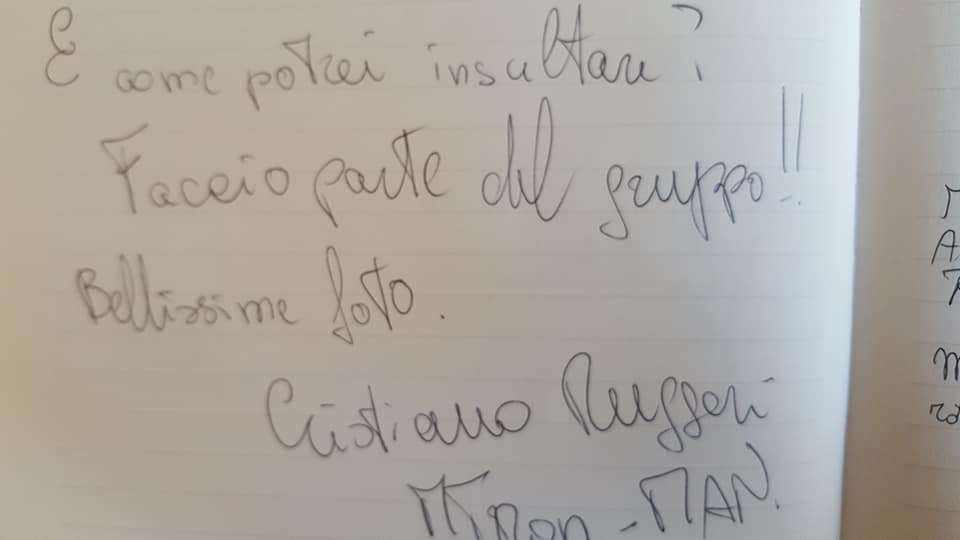 E come potrei insultare?
Faccio parte del gruppo!!
Bellissime foto.
Cristiano Ruggeri